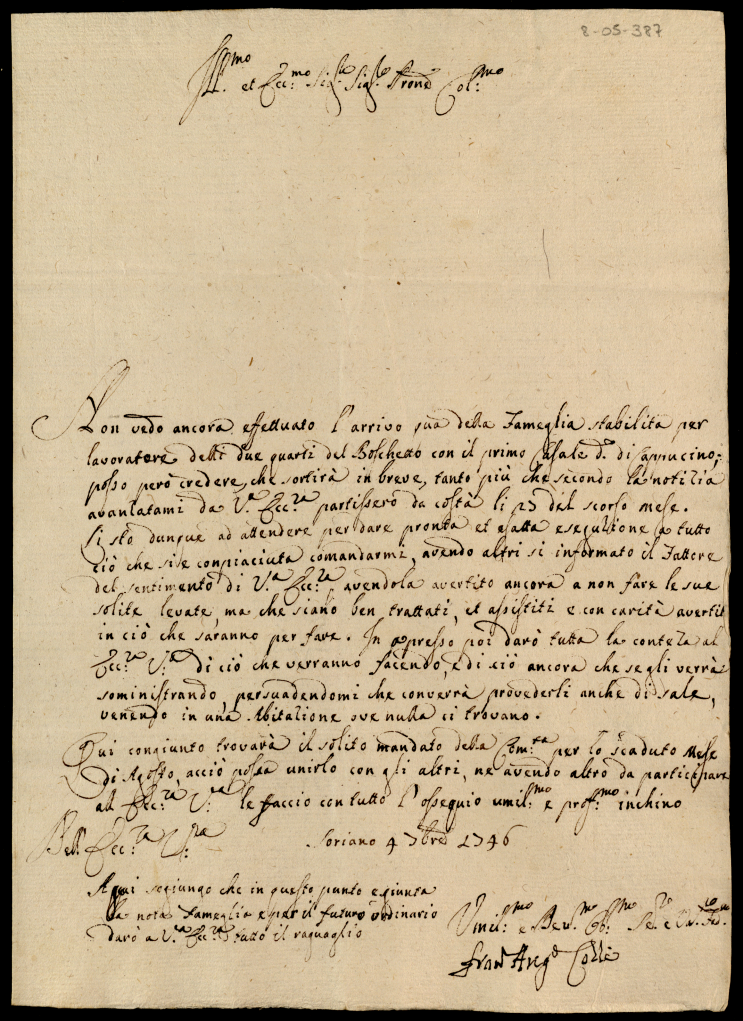 8-05-387
Ill.mo et Ecc:mo Sig:re Sig:re Pron Col:mo
Non vedo ancora effettuato l'arrivo qua della Fameglia stabilita per
lavoratore delli due quarti del Boschetto con il primo Casale d.o di Cappucino;
posso però credere, che sortirà in breve, tanto più che secondo la notizia
avanzatami da V.a Ecc:za partissero da costà li 23 del scorso mese.
Si stò dunque ad attendere per dare pronta et esatta esequzione a tutto
ciò che si è conpiaciuta comandarmi, avendo altri si informato il Fattore
del sentimento di V.a Ecc:za, avendola avertito ancora a non fare le sue
solite levate, ma che siano ben trattati, et assistiti e con carità avertiti
in ciò che saranno per fare. In appresso poi darò tutta la conteza al
Ecc:za V.a di ciò che verranno facendo, e di ciò ancora che se gli verrà
soministrando, persuadendomi che converrà provederli anche di sale,
venendo in una Abitazione ove nulla ci trovano.
Qui congiunto trovarà il solito mandato della Com:tà per lo scaduto Mese
di Agosto, acciò possa unirlo con gli altri, ne avendo altro da participare
all Ecc:za V:ra le faccio con tutto l'ossequio umil:mo e prof:mo inchino
Dell' Ecc:za V:ra
Soriano 4 7bre 1746
A qui segiungo che in questo punto è giunta
la nota Fameglia e per il futuro ordinario
darò a V.a Ecc:za tutto il raguaglio
Umil:mo e Dev:mo Ob:mo Se:re
Fran Ang.o